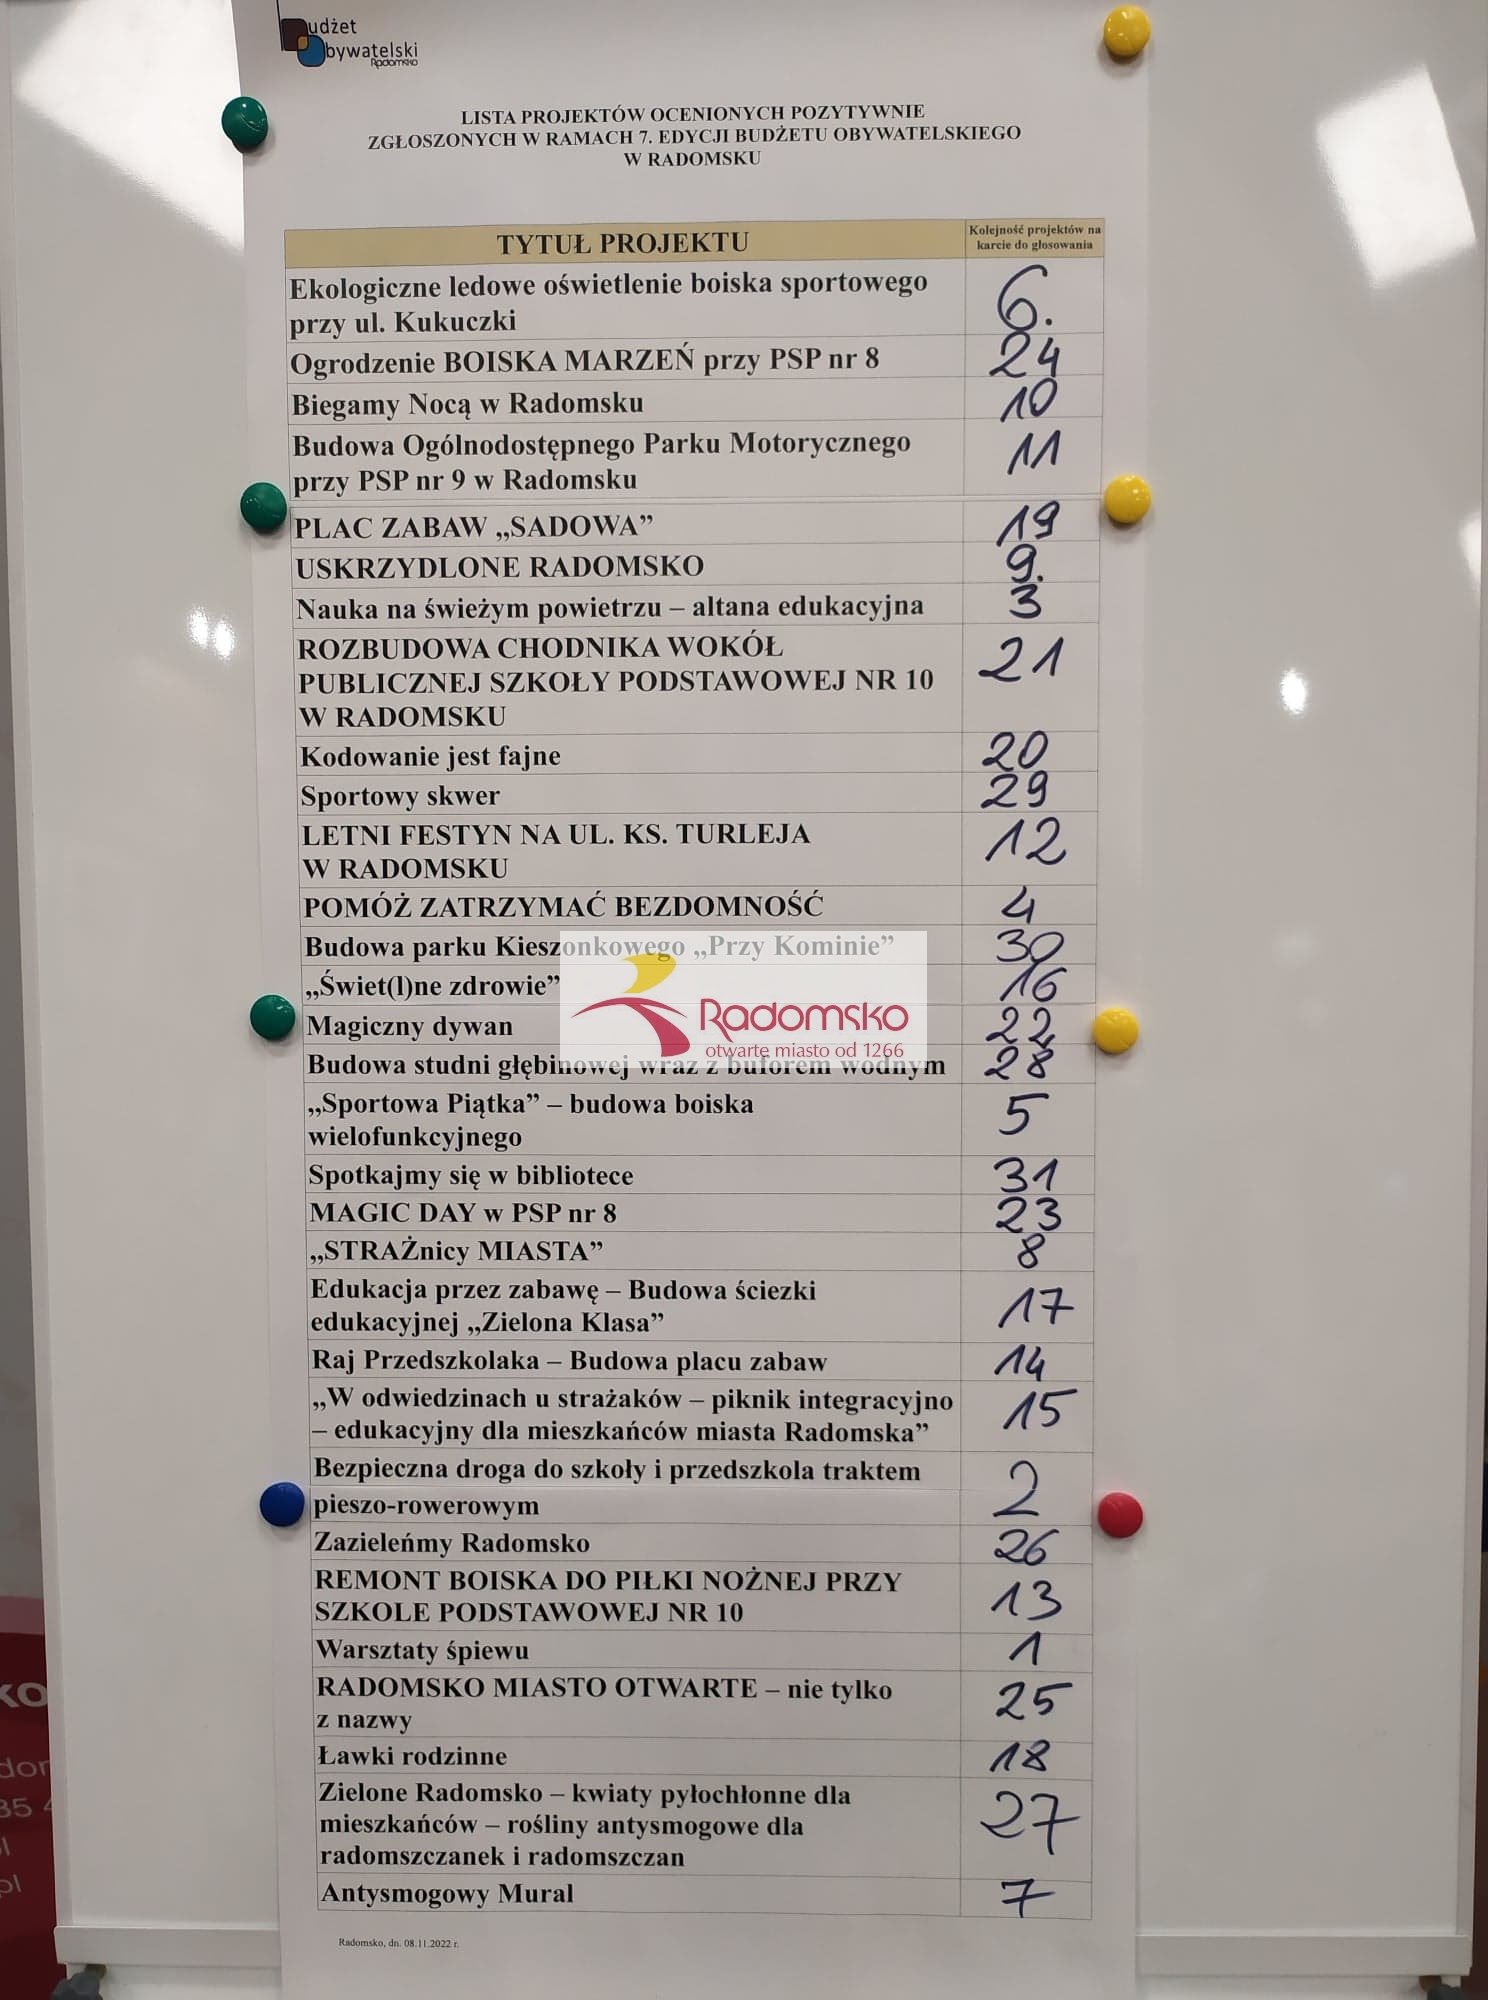 Budżet
Obywatelski
Radomsko
LISTA PROJEKTÓW OCENIONYCH POZYTYWNIE
ZGŁOSZONYCH W RAMACH 7. EDYCJI BUDŻETU OBYWATELSKIEGO
W RADOMSKU
TYTUŁ PROJEKTU
Kolejność projektów na
karcie do głosowania
Ekologiczne ledowe oświetlenie boiska sportowego
przy ul. Kukuczki
6.
Ogrodzenie BOISKA MARZEŃ przy PSP nr 8
24
Biegamy Nocą w Radomsku
10
Budowa Ogólnodostępnego Parku Motorycznego
przy PSP nr 9 w Radomsku
11
PLAC ZABAW „SADOWA”
19
USKRZYDLONE RADOMSKO
9.
Nauka na świeżym powietrzu – altana edukacyjna
3
ROZBUDOWA CHODNIKA WOKÓŁ
PUBLICZNEJ SZKOŁY PODSTAWOWEJ NR 10
W RADOMSKU
21
Kodowanie jest fajne
20
Sportowy skwer
29
LETNI FESTYN NA UL. KS. TURLEJA
W RADOMSKU
12
POMÓŻ ZATRZYMAĆ BEZDOMNOŚĆ
4
Budowa parku Kieszonkowego „Przy Kominie”
30
„Świet(l)ne zdrowie”
16
Magiczny dywan
22
Radomsko
otwarte miasto od 1266
Budowa studni głębinowej wraz z buforem wodnym
28
„Sportowa Piątka” – budowa boiska
wielofunkcyjnego
5
Spotkajmy się w bibliotece
31
MAGIC DAY w PSP nr 8
23
„STRAŻnicy MIASTA”
8
Edukacja przez zabawę – Budowa ściezki
edukacyjnej „Zielona Klasa”
17
Raj Przedszkolaka – Budowa placu zabaw
14
„W odwiedzinach u strażaków – piknik integracyjno
– edukacyjny dla mieszkańców miasta Radomska”
15
Bezpieczna droga do szkoły i przedszkola traktem
pieszo-rowerowym
2
Zazieleńmy Radomsko
26
REMONT BOISKA DO PIŁKI NOŻNEJ PRZY
SZKOLE PODSTAWOWEJ NR 10
13
Warsztaty śpiewu
1
RADOMSKO MIASTO OTWARTE – nie tylko
z nazwy
25
Ławki rodzinne
18
Zielone Radomsko – kwiaty pyłochłonne dla
mieszkańców – rośliny antysmogowe dla
radomszczanek i radomszczan
27
Antysmogowy Mural
7
Radomsko, dn. 08.11.2022 r.